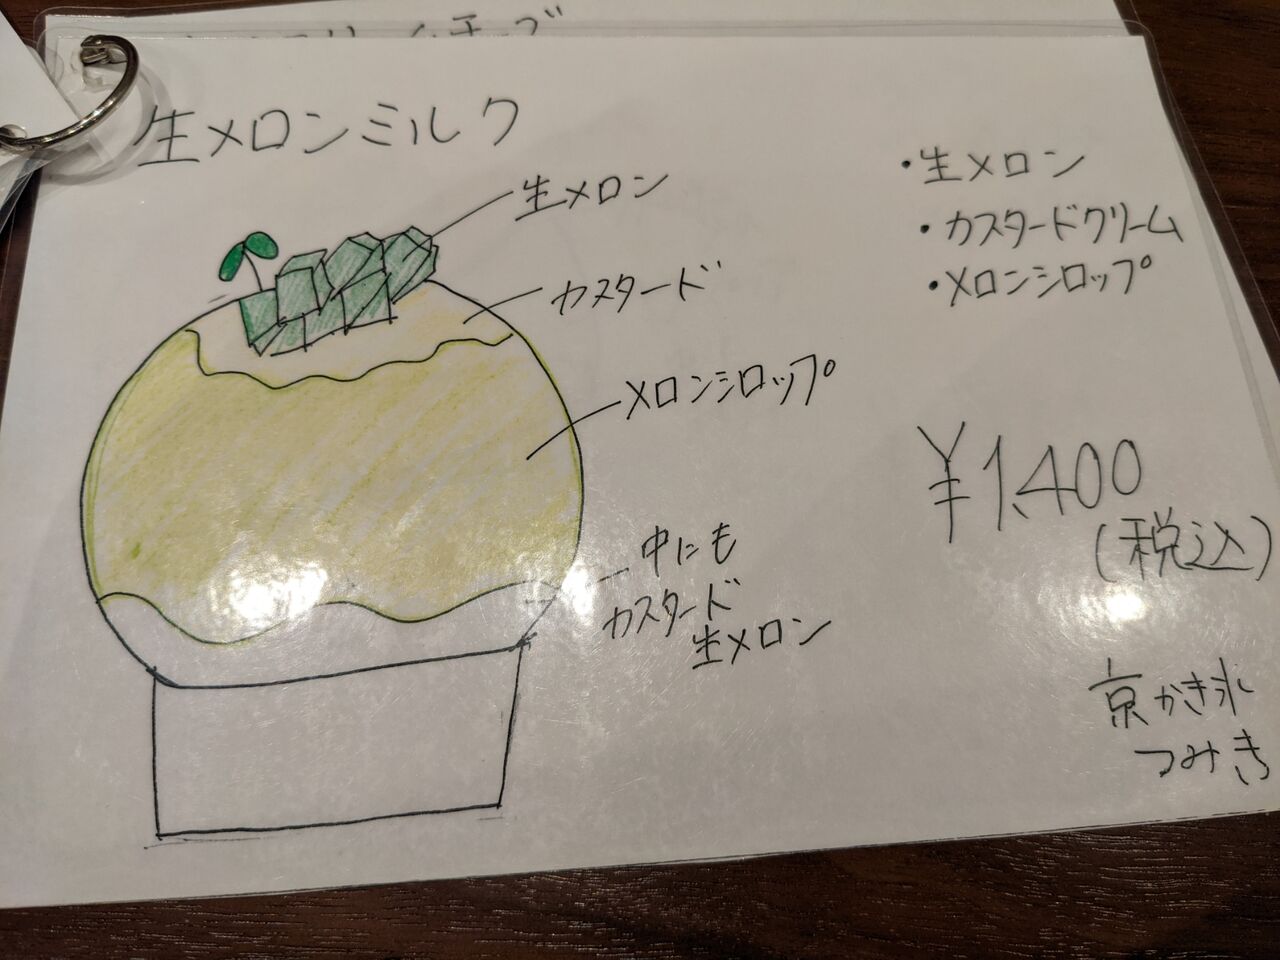 生メロンミルク
生メロン
カスタード
メロンシロップ
中にも
カスタード
生メロン
・生メロン
・カスタードクリーム
・メロンシロップ
¥1,400
(税込)
京かき氷
つみき